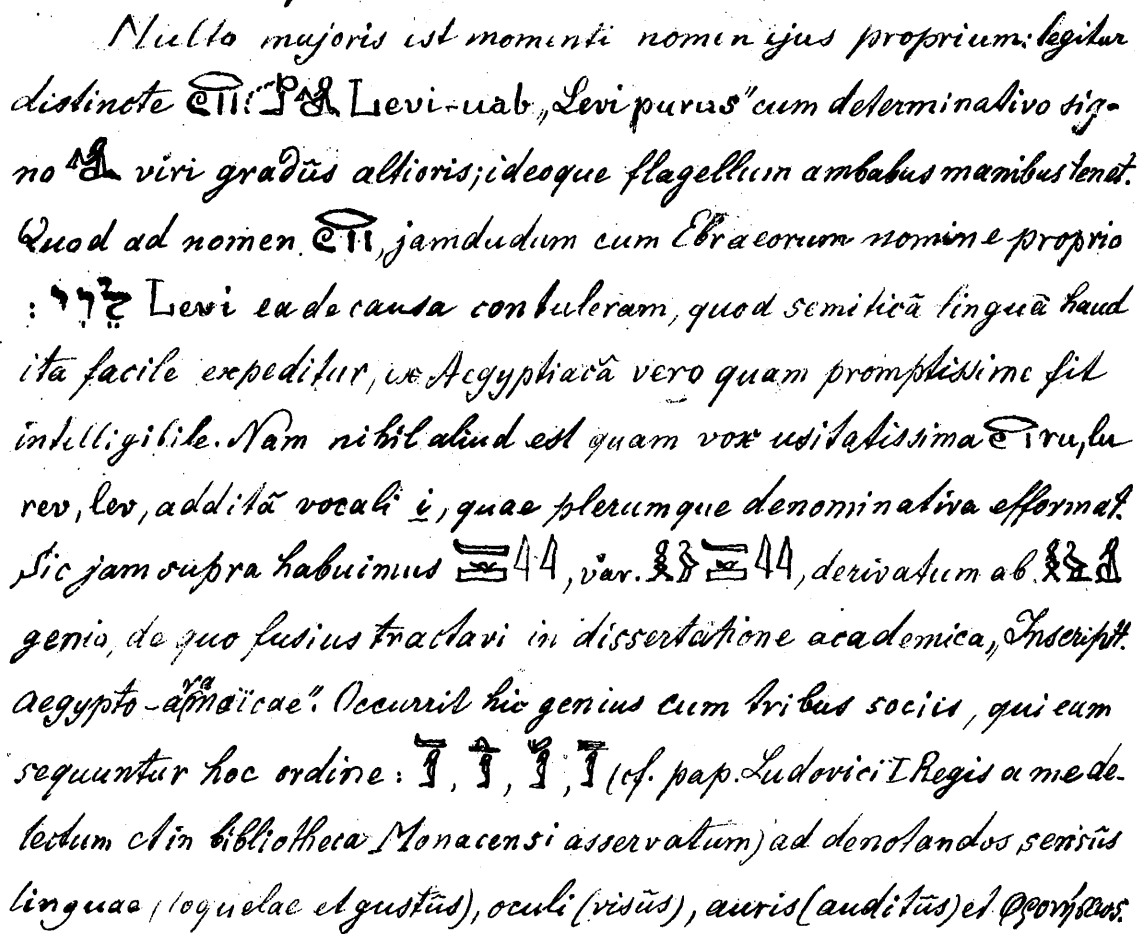 Multo majoris est momenti nomen ejus proprium: legitur
distincte Levi-uab „Levi purus" cum determinativo sig-
no viri gradûs altioris; ideoque flagellum ambabus manibus tenet.
Quod ad nomen , jamdudum cum Ebraeorum nomine proprio
: לֵוִי Levi ea de causa contuleram, quod semiticâ linguâ haud
ita facile expeditur, ex Aegyptiacâ vero quam promptissime fit
intelligibile. Nam nihil aliud est quam vox usitatissima ru, lu
rev, lev, additâ vocali i, quae plerumque denominativa efformat.
Sic jam supra habuimus , var. , derivatum ab
genio, de quo fusius tractavi in dissertatione academica „Inscriptt.
aegypto-aramaïcae". Occurrit hic genius cum tribus sociis, qui eum
sequuntur hoc ordine: , , , (cf. pap. Ludovici I Regis a me de-
tectum et in bibliotheca Monacensi asservatum) ad denotandos sensûs
linguae (loquelae et gustûs), oculi (visûs), auris (auditûs) et φρονήσεως.